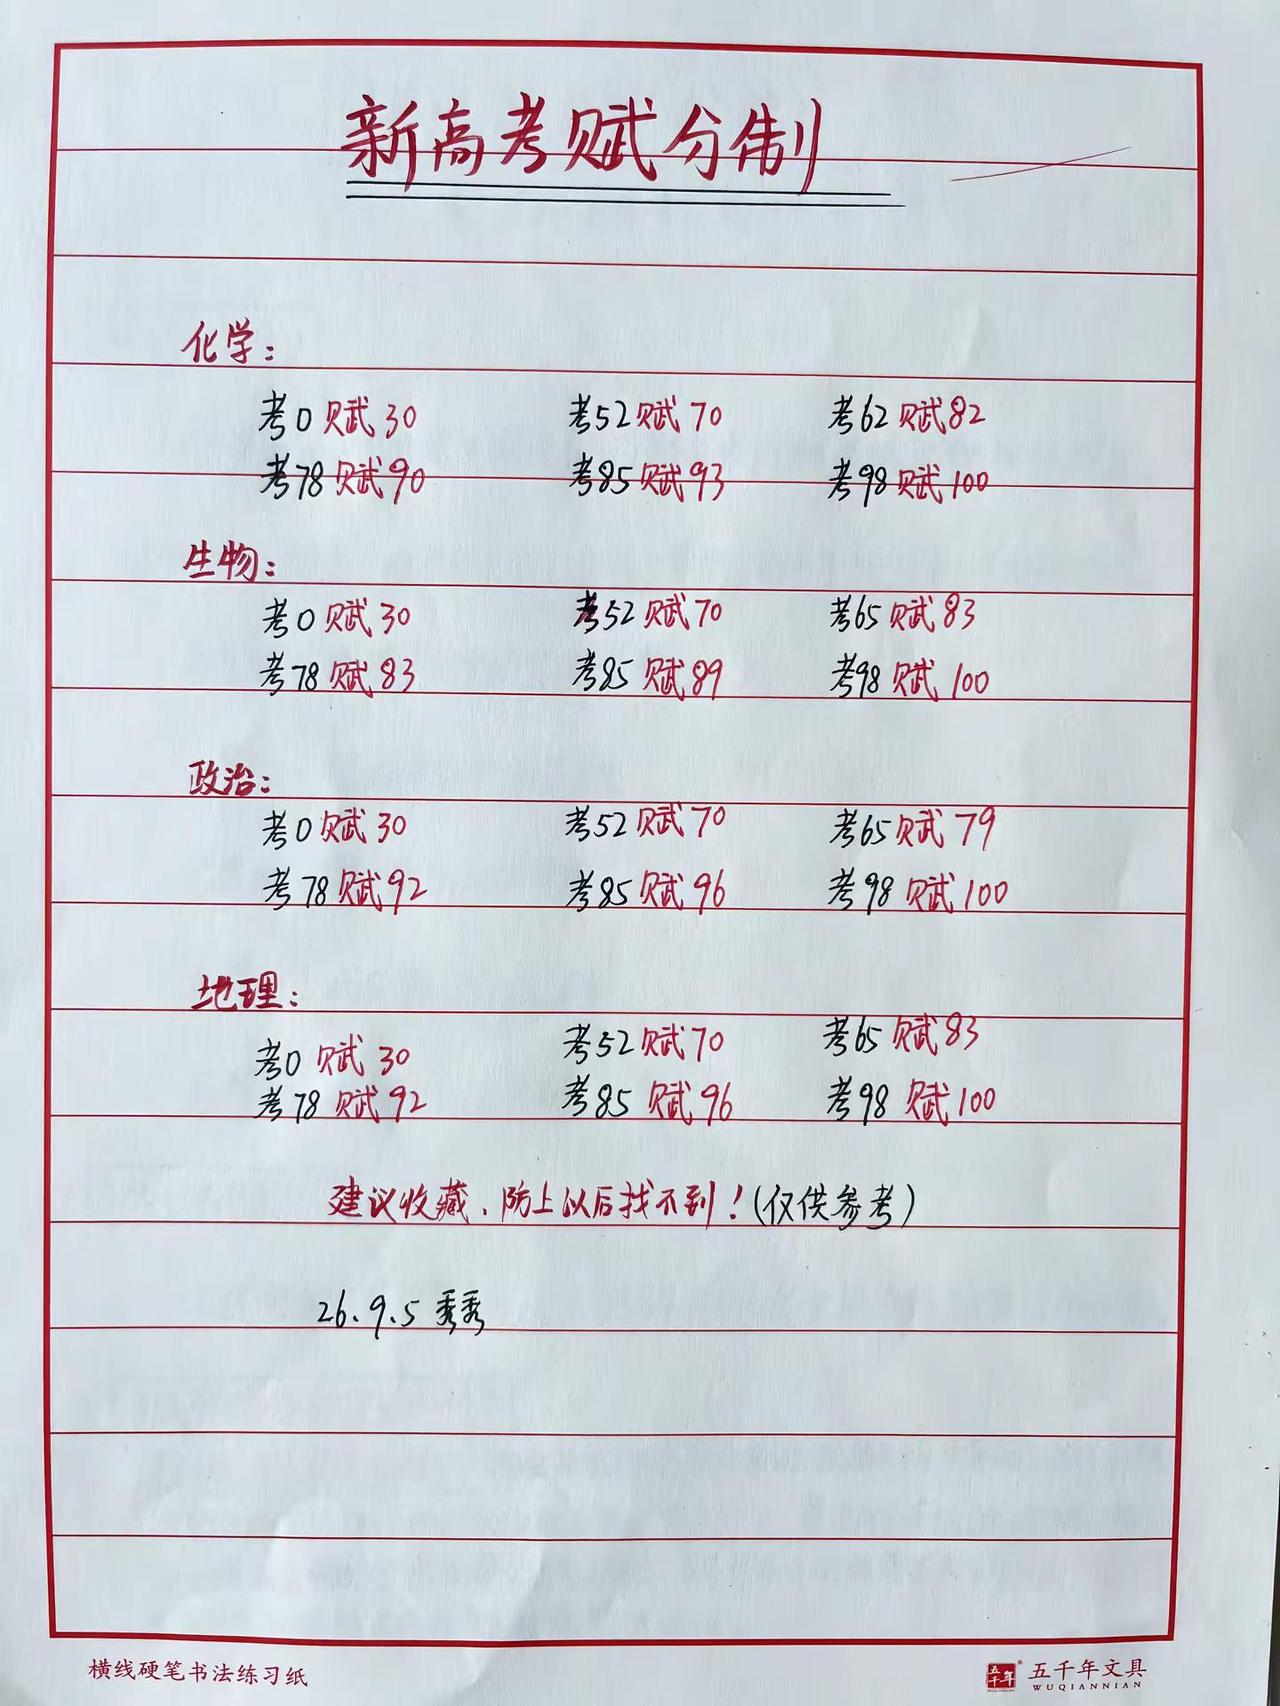 新高考赋分制
化学：
考0赋30 考52赋70 考62赋82
考78赋90 考85赋93 考98赋100
生物：
考0赋30 考52赋70 考65赋83
考78赋83 考85赋89 考98赋100
政治：
考0赋30 考52赋70 考65赋79
考78赋92 考85赋96 考98赋100
地理：
考0赋30 考52赋70 考65赋83
考78赋92 考85赋96 考98赋100
建议收藏、防止以后找不到！（仅供参考）
26.9.5 秀秀
横线硬笔书法练习纸
五千年 五千年文具
WUQIANNIAN